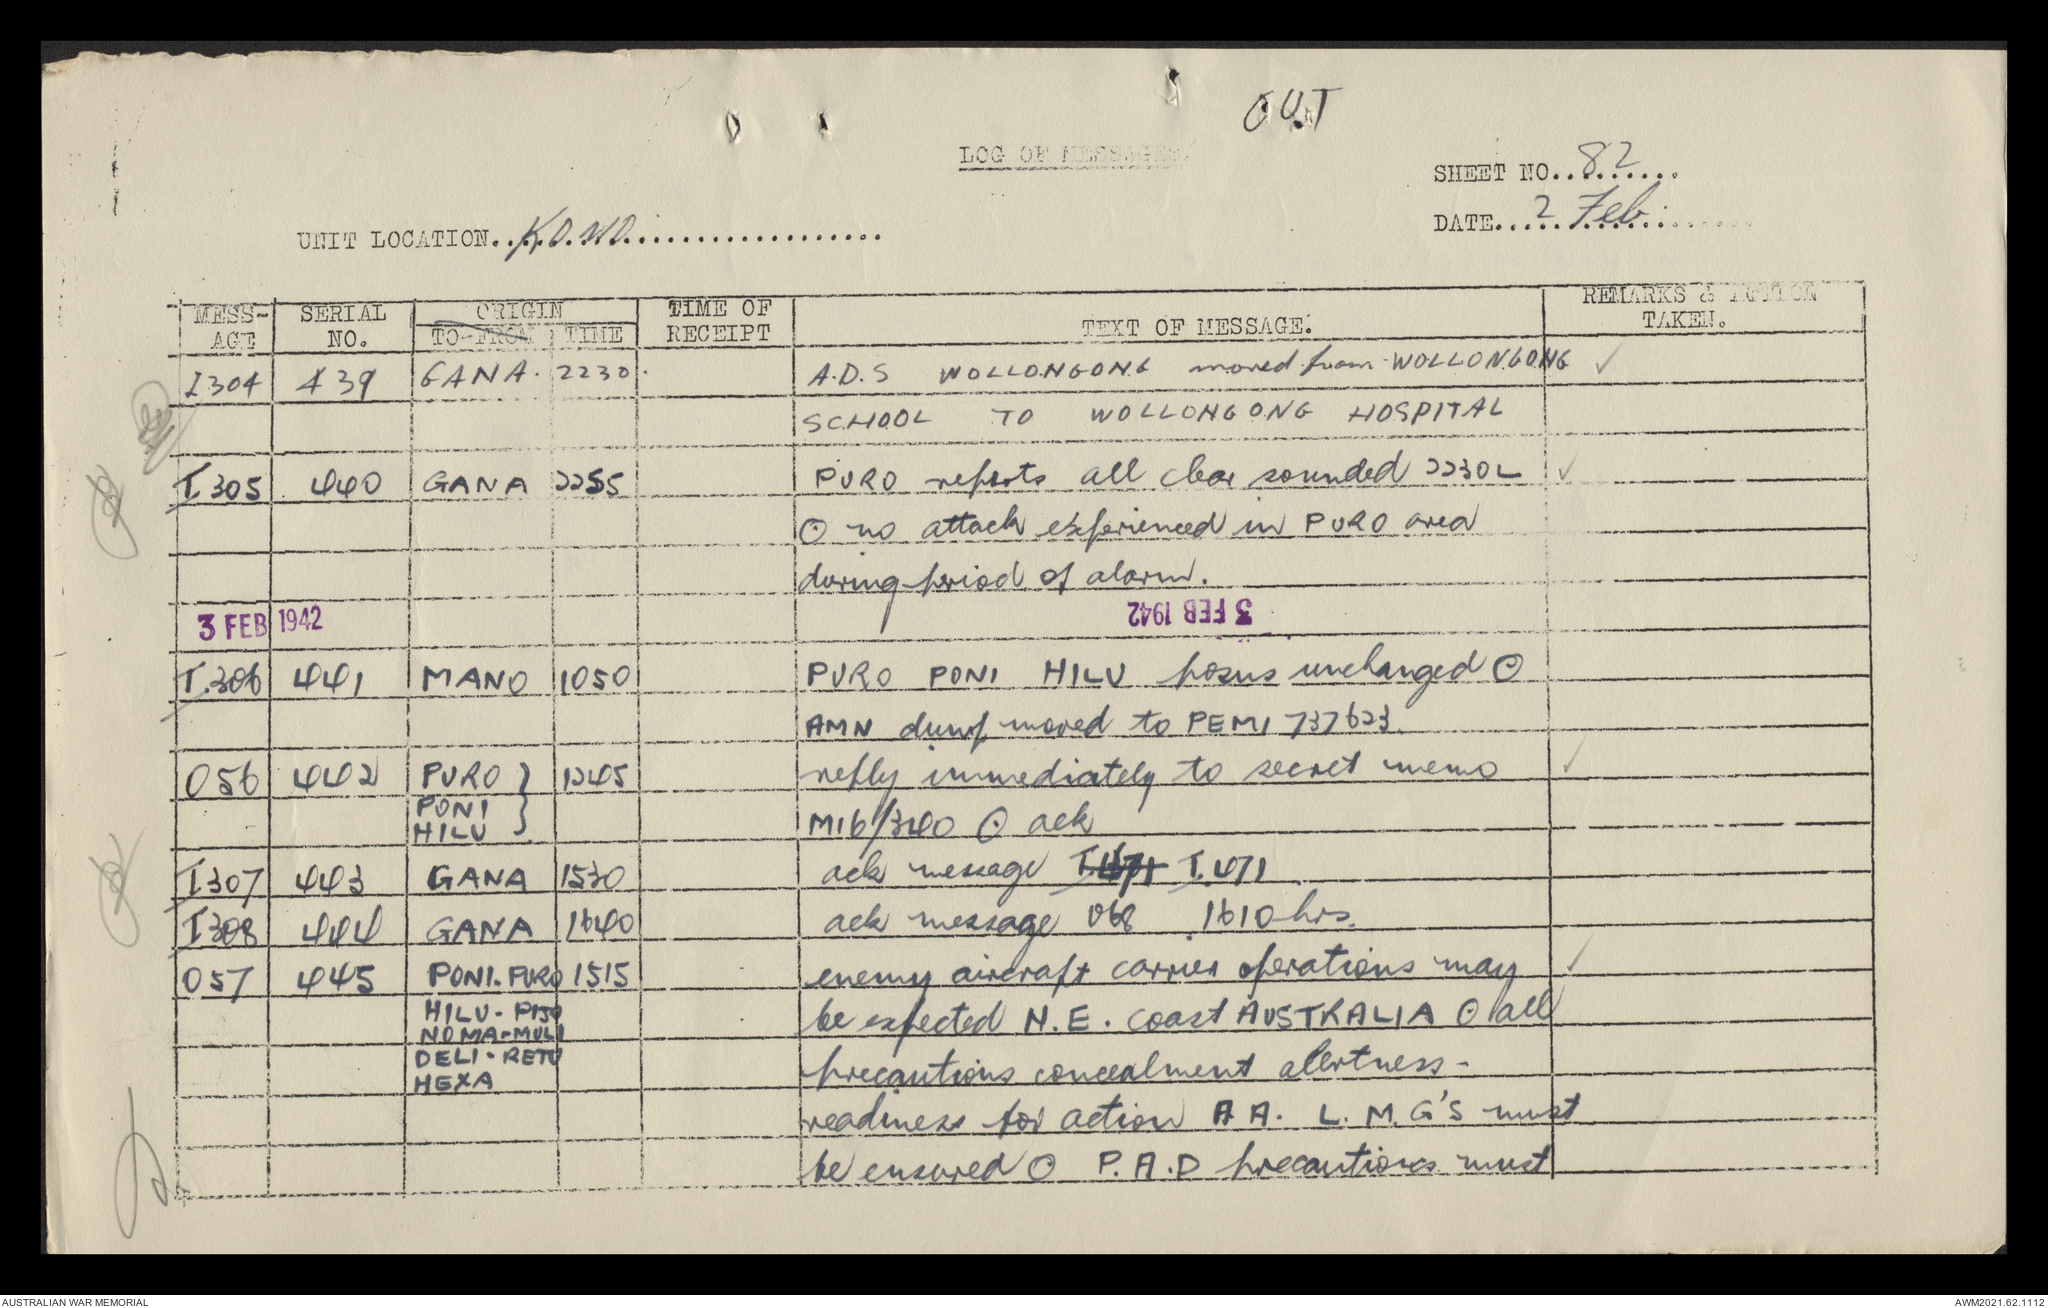 OUT
LOG OF MESSAGES.
SHEET NO. 82
DATE 2 Feb
UNIT LOCATION. KO.WO
MESS-AGE SERIAL NO. ORIGIN TO-FROM TIME TIME OF RECEIPT TEXT OF MESSAGE. REMARKS & ACTION TAKEN.
I304 439 GANA. 2230. A.D.S WOLLONGONG moved from WOLLONGONG ✓
SCHOOL TO WOLLONGONG HOSPITAL
I305 440 GANA 2255 PURO reports all clear sounded 2230L ✓
⊙ no attack experienced in PURO area
during period of alarm.
3 FEB 1942 3 FEB 1942
I.306 441 MANO 1050 PURO PONI HILU posns unchanged ⊙
AMN dump moved to PEMI 737623.
O56 442 PURO } 1245 reply immediately to secret memo ✓
PONI
HILU M16/340 ⊙ ack
I307 443 GANA 1530 ack message I.471 I.471
I308 444 GANA 1640 ack message O68 1610 hrs.
O57 445 PONI.PURO 1515 enemy aircraft carrier operations may ✓
HILU - PIJO be expected N.E. coast AUSTRALIA ⊙ all
NOMA-MULI
DELI-RETU precautions concealment alertness -
HEXA
readiness for action A A. L.M.G'S must
be ensured ⊙ P.A.D precautions must
AUSTRALIAN WAR MEMORIAL
AWM2021.62.1112